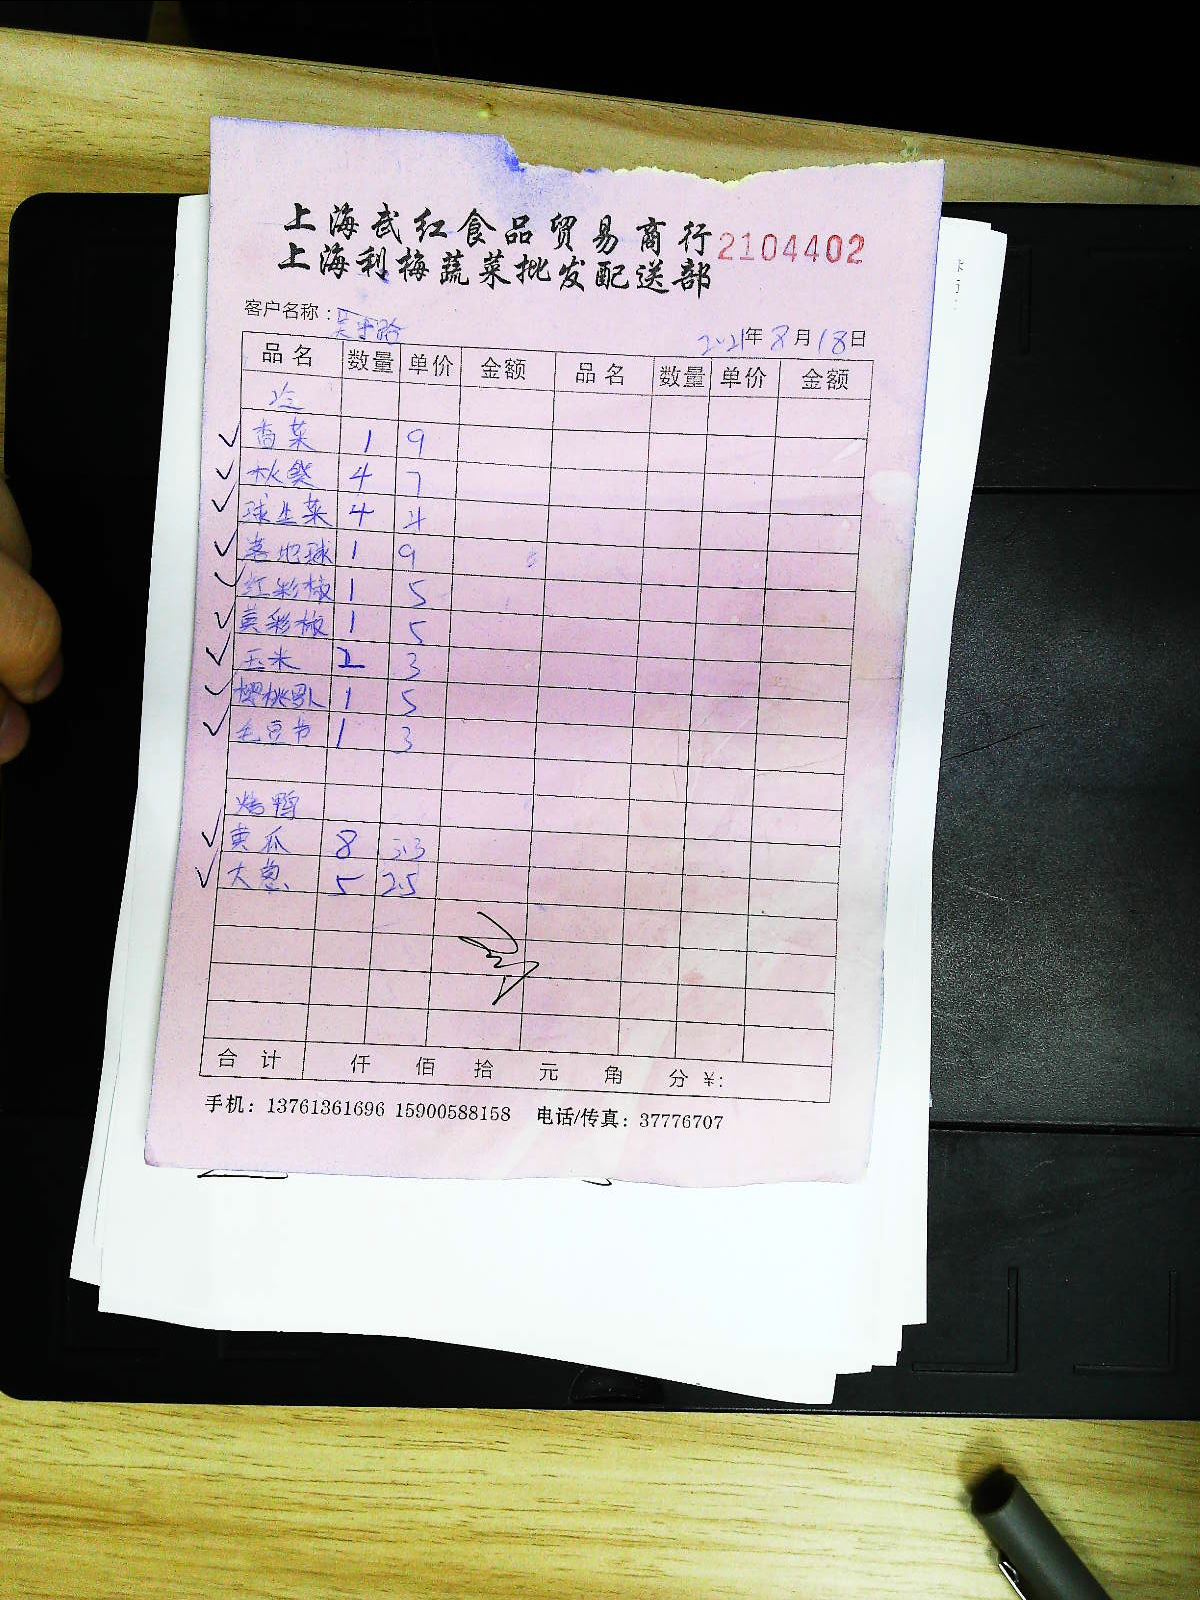 上海武红食品贸易商行
上海利梅蔬菜批发配送部 2104402
客户名称：吴中路
2021年8月18日
品名 数量 单价 金额 品名 数量 单价 金额
冷
香菜 1 9
秋葵 4 7
球生菜 4 4
落地球 1 9
红彩椒 1 5
黄彩椒 1 5
玉米 2 3
樱桃 1 5
毛豆节 1 3
烤鸭
黄瓜 8 3.3
大葱 5 2.5
合计 仟 佰 拾 元 角 分 ¥:
手机：13761361696 15900588158 电话/传真：37776707